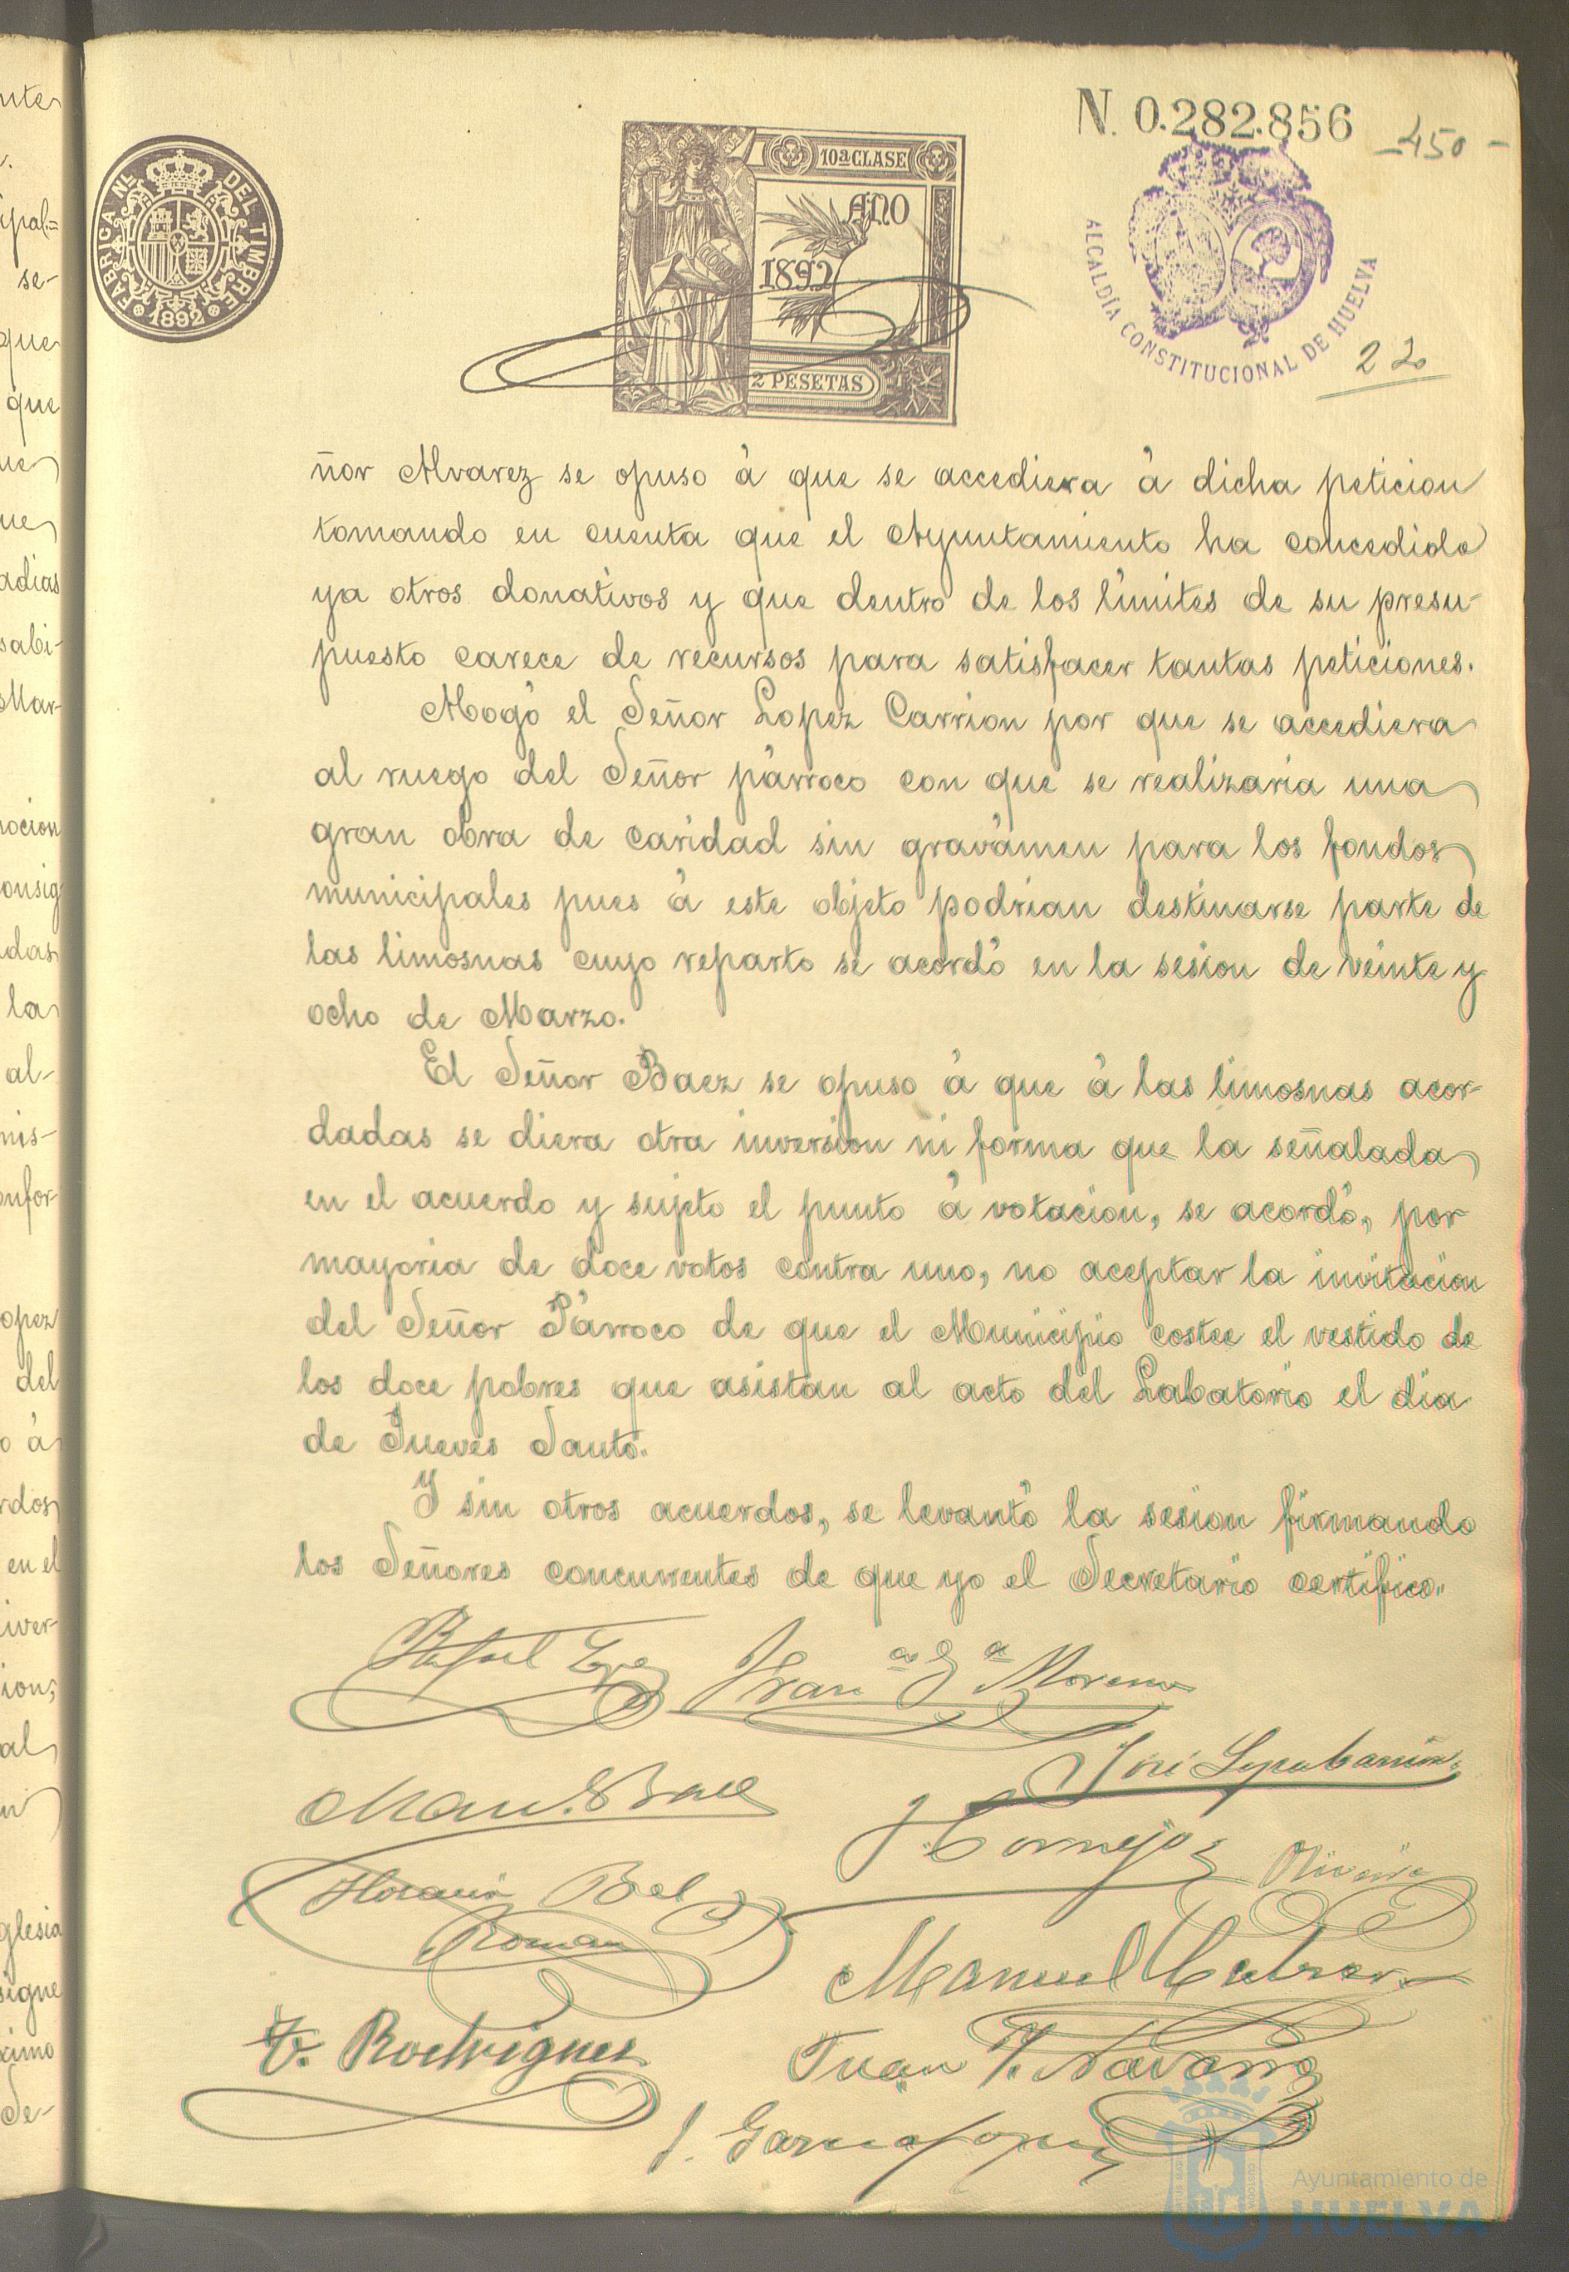 N. 0.282.856
-450-
FABRICA Nal DEL TIMBRE
1892
10ª CLASE
AÑO
1892
2 PESETAS
ALCALDÍA CONSTITUCIONAL DE HUELVA
220
ñor Alvarez se opuso á que se accediera á dicha peticion
tomando en cuenta que el Ayuntamiento ha concedido
ya otros donativos y que dentro de los límites de su presu-
puesto carece de recursos para satisfacer tantas peticiones.
Abogó el Señor Lopez Carrion por que se accediera
al ruego del Señor párroco con que se realizaria una
gran obra de caridad sin gravámen para los fondos
municipales pues á este objeto podrian destinarse parte de
las limosnas cuyo reparto se acordó en la sesion de veinte y
ocho de Marzo.
El Señor Baez se opuso á que á las limosnas acor-
dadas se diera otra inversion ni forma que la señalada
en el acuerdo y sujeto el punto á votacion, se acordó, por
mayoria de doce votos contra uno, no aceptar la invitacion
del Señor Párroco de que el Municipio costee el vestido de
los doce pobres que asistan al acto del Labatorio el dia
de Jueves Santo.
Y sin otros acuerdos, se levantó la sesion firmando
los Señores concurrentes de que yo el Secretario certifico.
Rafael Lopez
Franco Ga Moreno
José Lopez Carrion
Man. Baez
J. Cornejo
Oliveira
Horacio Bel
Roman
Manuel Cabrera
V. Rodriguez
Juan J. Navarro
J. Garcia Lopez
Ayuntamiento de
HUELVA